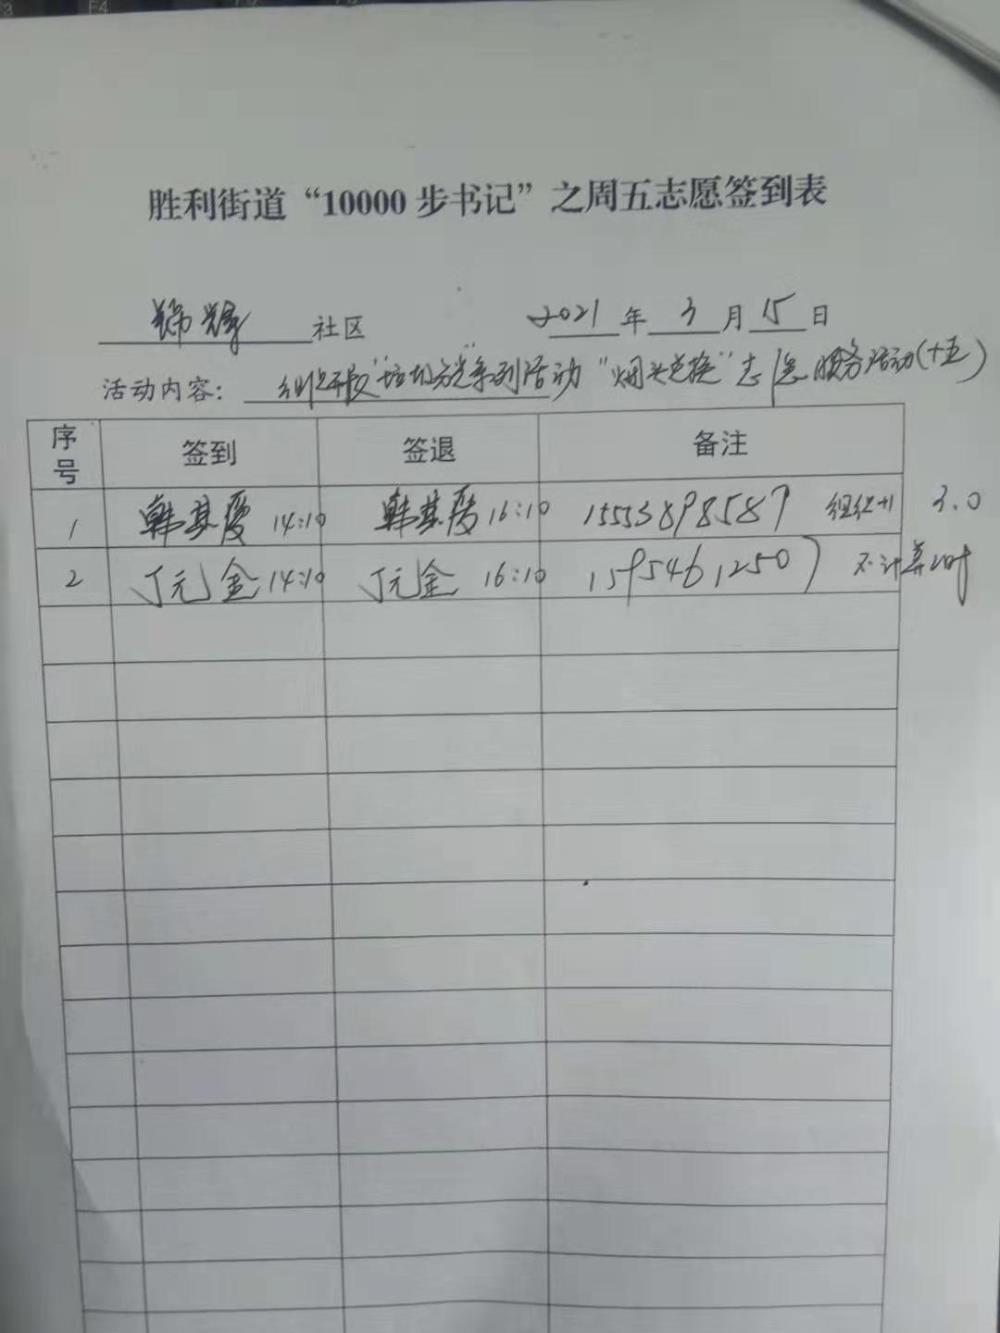 胜利街道“10000步书记”之周五志愿签到表
锦辉社区 2021年3月15日
活动内容：组织开展“垃圾分类”系列活动“烟头兑换”志愿服务活动(十五)
序号 签到 签退 备注
1 韩基厚 14:10 韩基厚 16:10 15553898587 组织+1 3.0
2 丁元金 14:10 丁元金 16:10 15954612507 不计算时